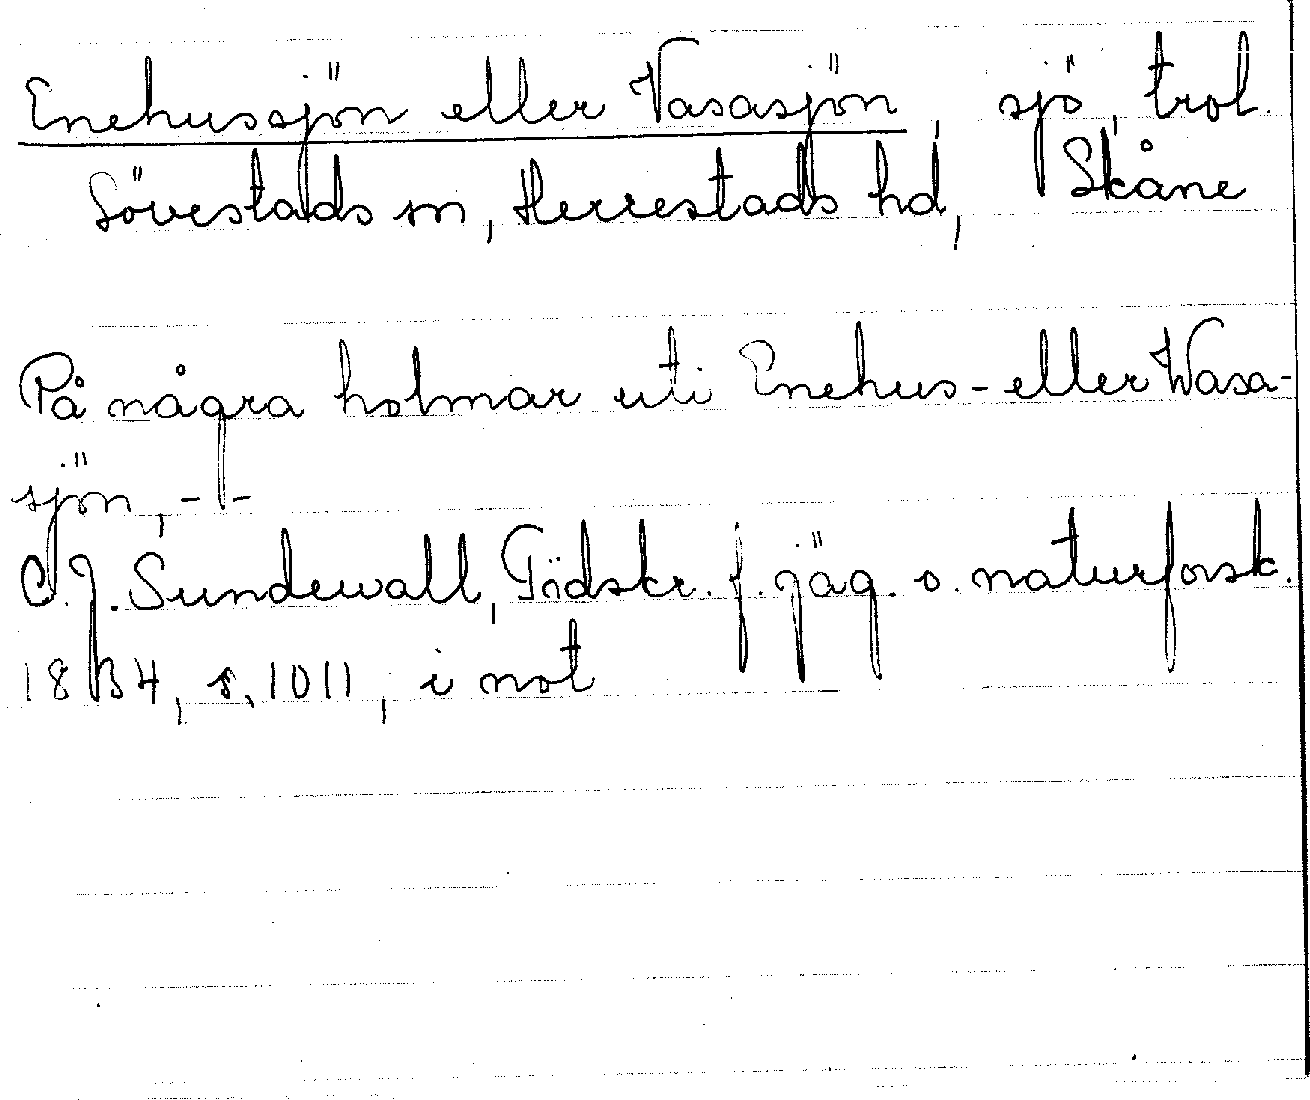 Enehussjön eller Vasasjön, sjö, trol.
Sövestads sn, Herrestads hd, Skåne
På några holmar uti Enehus- eller Wasa-
sjön, -|-
C. J. Sundewall, Tidskr. f. jäg. o. naturforsk.
1834, s. 1011, i not